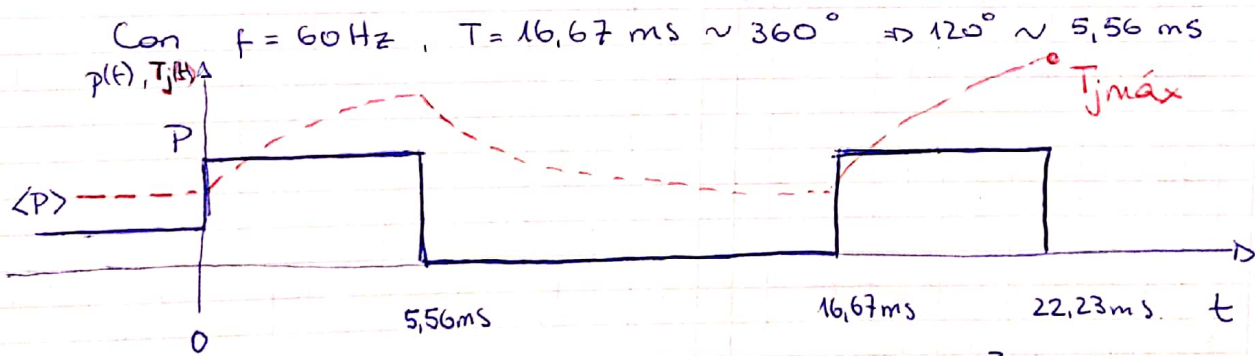 Con f = 60 Hz, T = 16,67 ms ~ 360° ⇒ 120° ~ 5,56 ms
p(t), Tj(t)
Tjmáx
P
<P>
5,56ms 16,67ms 22,23ms. t
0